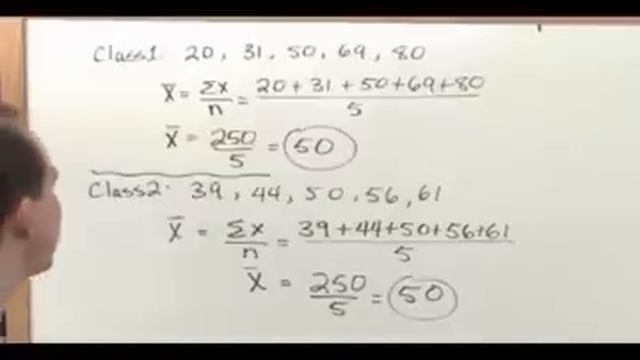 Class1: 20, 31, 50, 69, 80
X̄ = Σx/n = 20+31+50+69+80/5
X̄ = 250/5 = 50
Class2: 39, 44, 50, 56, 61
X̄ = Σx/n = 39+44+50+56+61/5
X̄ = 250/5 = 50